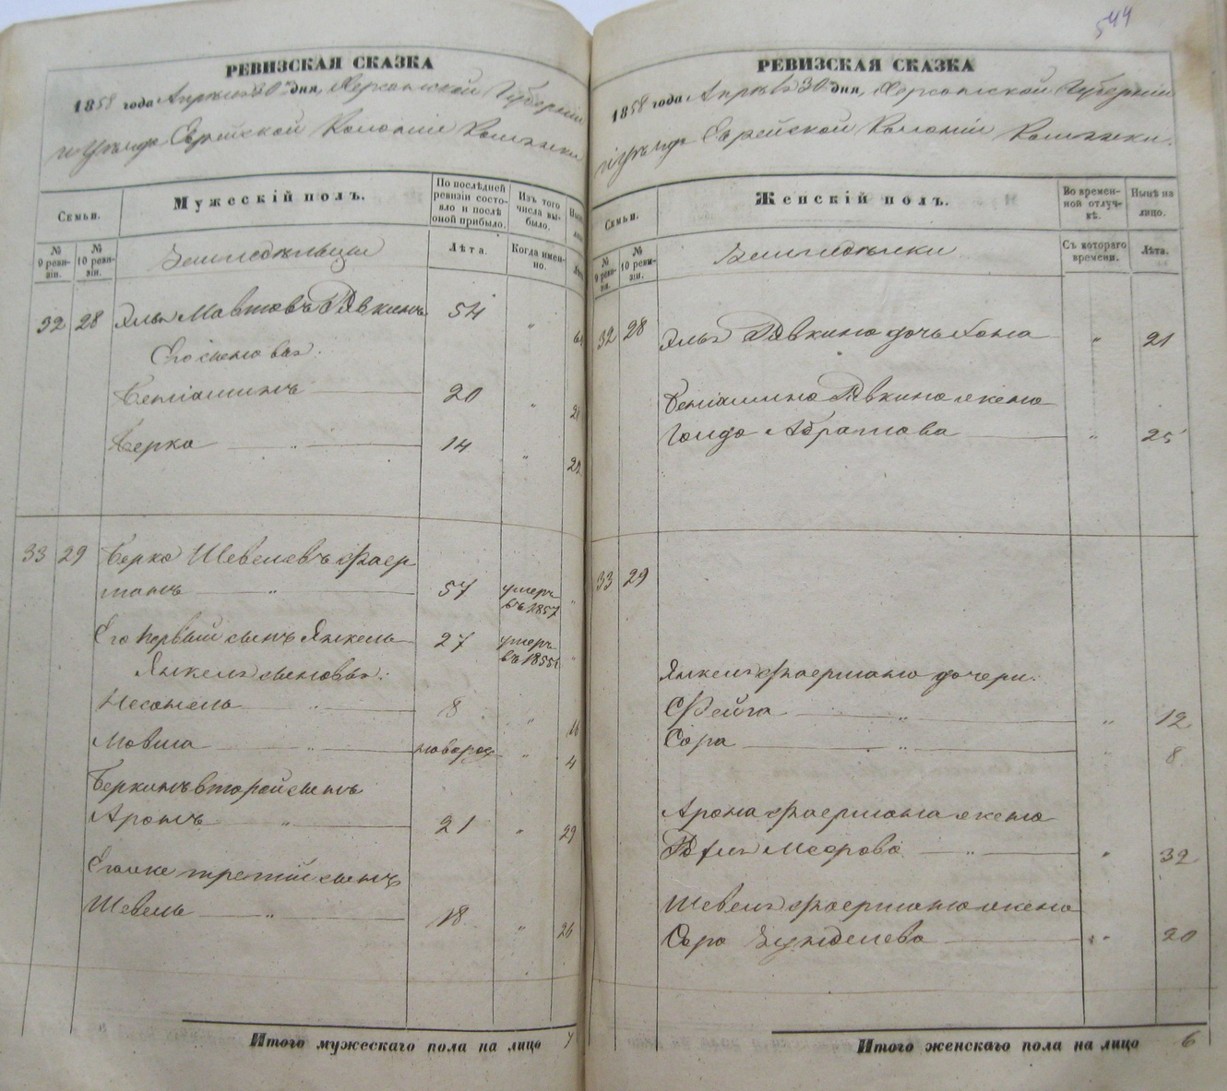 544
РЕВИЗСКАЯ СКАЗКА
1858 года Апреля 30 дня, Херсонской Губерніи
и уѣзда Еврейской Колоніи
Семьи.
Мужескій полъ.
По послѣдней ревизіи состояло и послѣ оной прибыло.
Изъ того числа выбыло.
№ 9 ревизіи.
№ 10 ревизіи.
Земледѣльцы
Лѣта.
Когда именно.
32 28 Эль Мовшовъ Рывкинъ 54 "
Его сыновья:
Беніаминъ 20 "
Берко " 14 "
33 29 Берко Шевелевъ Фаер
манъ " 57 умеръ въ 1857 "
Его первый сынъ Янкель 27 умеръ въ 1855 "
Янкеля сыновья:
" 8 " 16
Мовша " новорож " 4
Беркинъ второй сынъ
Аронъ " 21 " 29
Его же третій сынъ
Шевель " 18 " 26
Итого мужескаго пола на лицо 7
РЕВИЗСКАЯ СКАЗКА
1858 года Апрѣля 30 дня, Херсонской Губерніи
и уѣзда Еврейской Колоніи
Семьи.
Женскій полъ.
Во временной отлучкѣ.
Нынѣ на лицо.
№ 9 ревизіи.
№ 10 ревизіи.
Земледѣлки
Съ котораго времени.
Лѣта.
32 28 Эля Рывкина дочь " 21
Беніамина Рывкина жена
Абрамова " 25
33 29
Янкеля Фаермана дочери:
Фейга " " 12
Сора " " 8
Арона Фаермана жена
Меерова " " 32
Шевеля Фаермана жена
Сора " 20
Итого женскаго пола на лицо 6